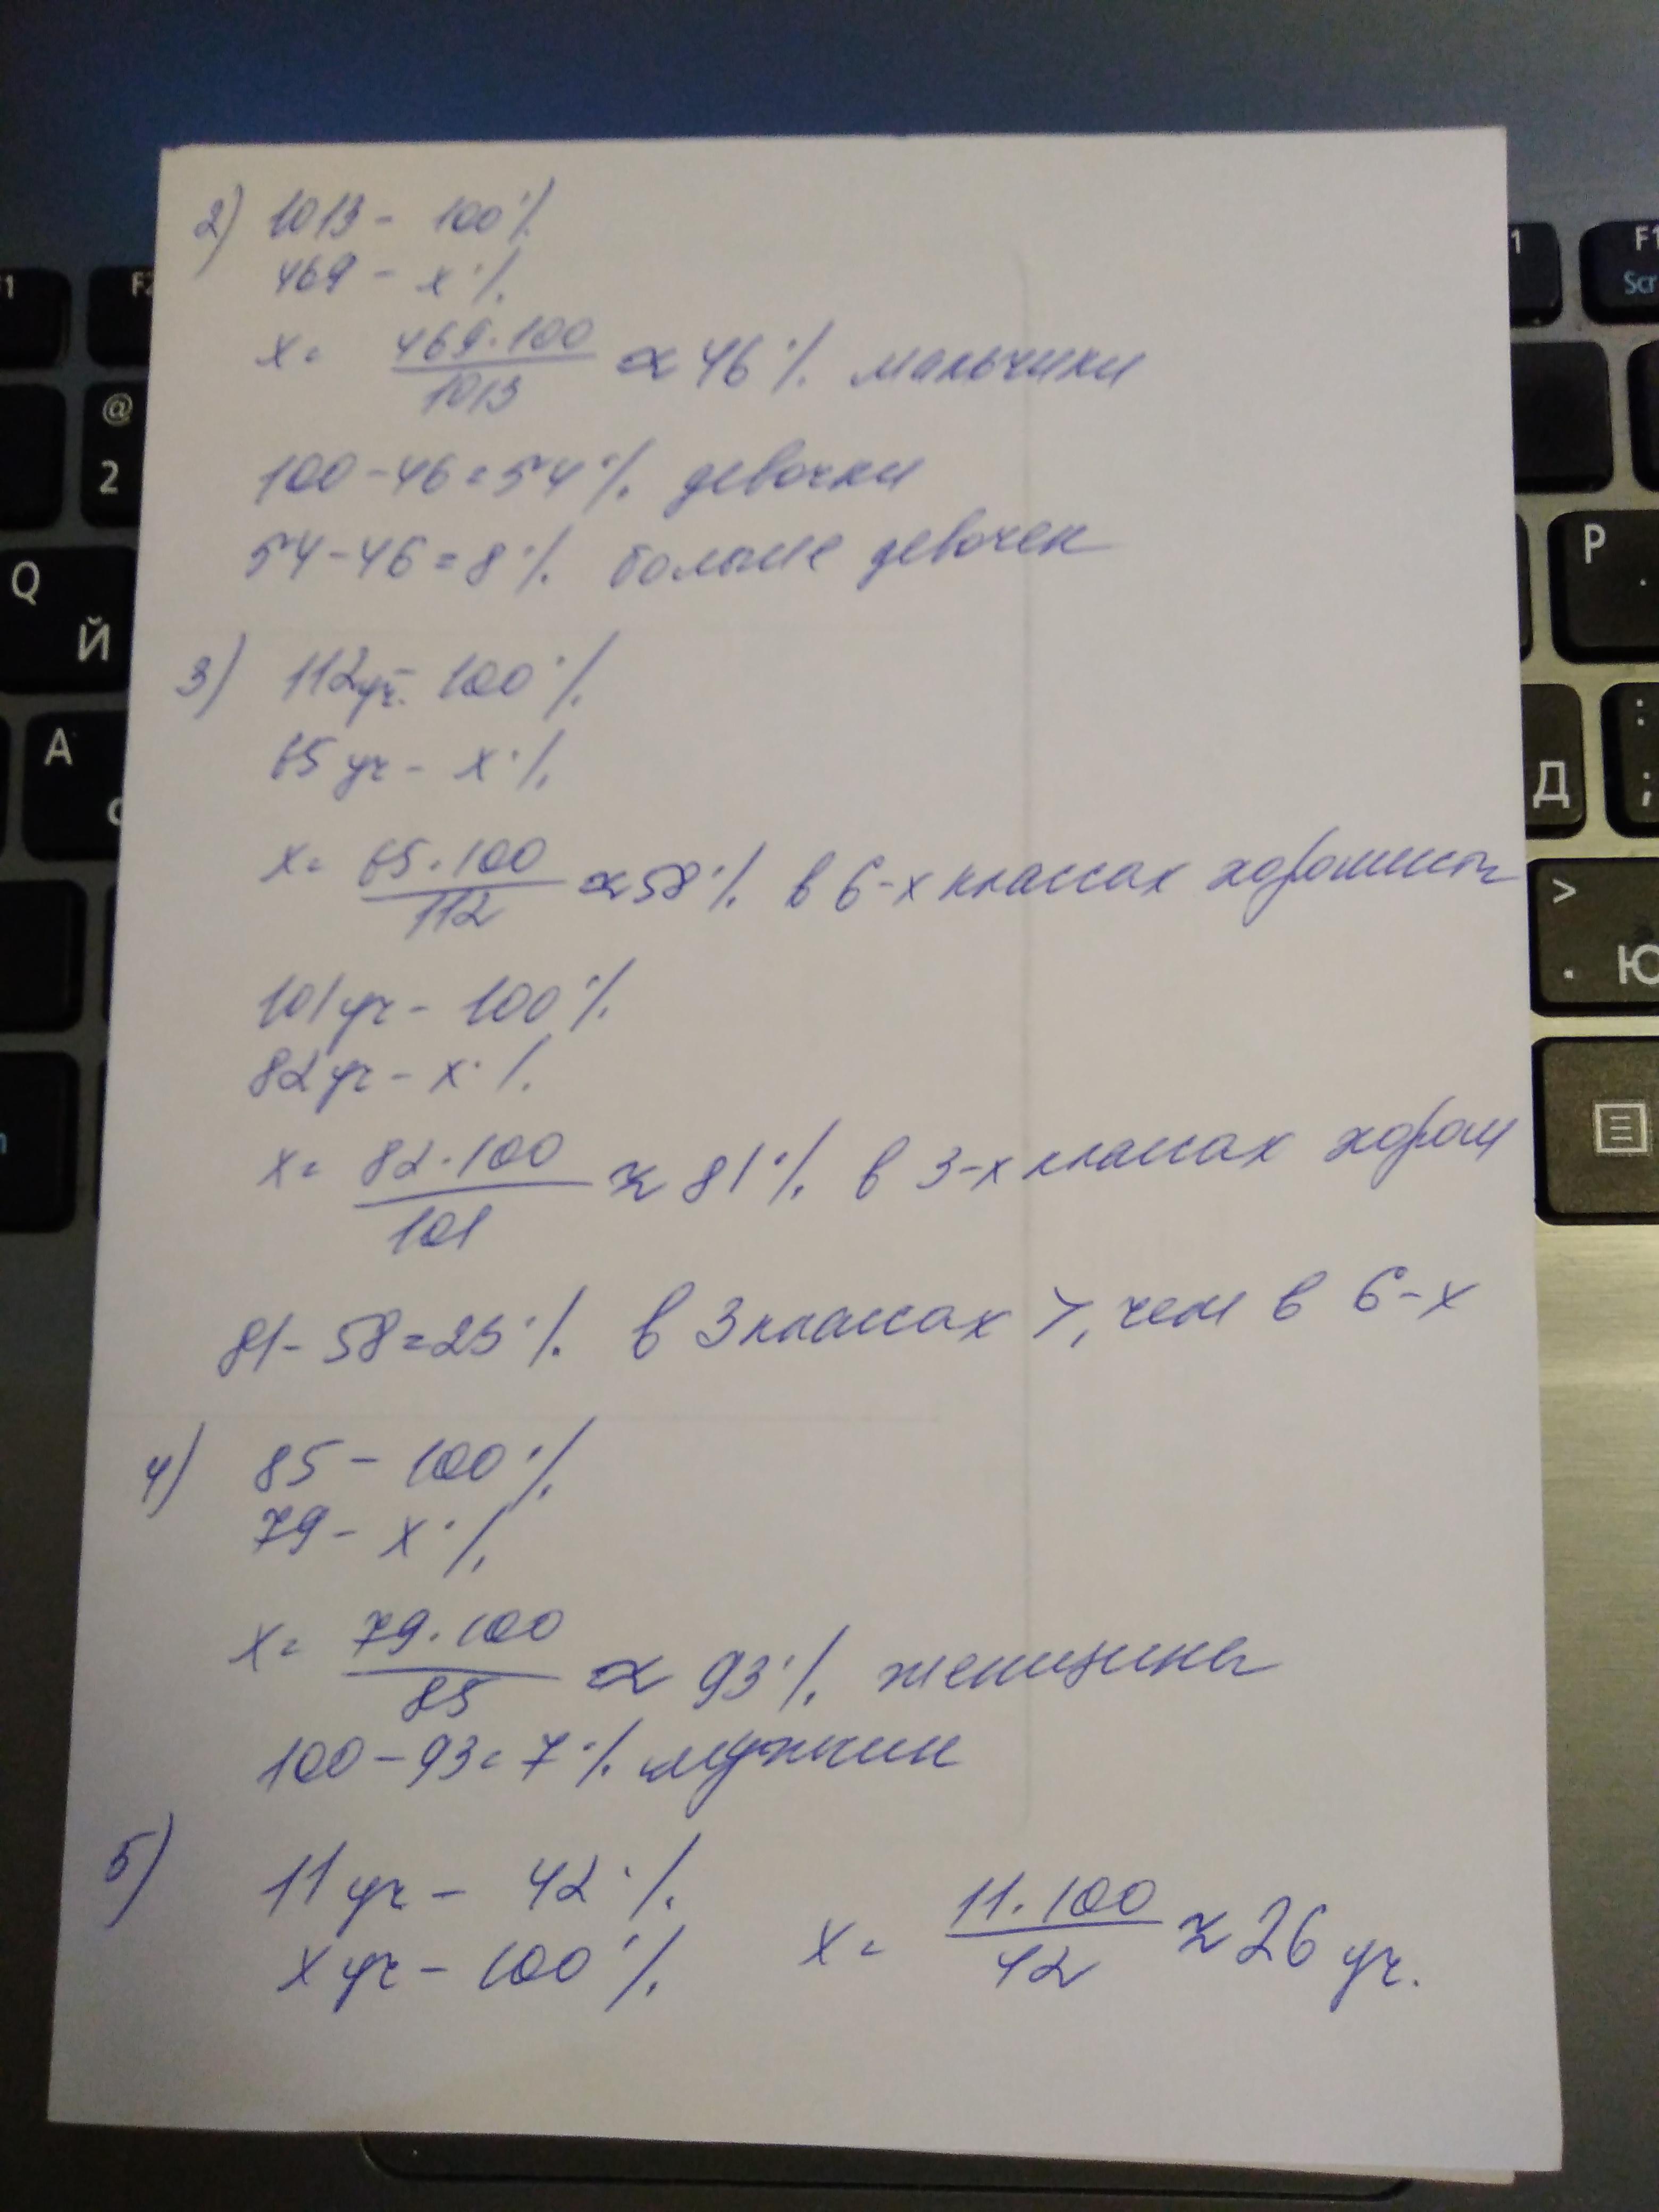 2) 1013 - 100%
469 - x%
x = 469·100 / 1013 ≈ 46% мальчики
100 - 46 = 54% девочки
54 - 46 = 8% больше девочек
3) 112 уч. - 100%
65 уч - x%
x = 65·100 / 112 ≈ 58% в 6-х классах хорошисты
101 уч - 100%
82 уч - x%
x = 82·100 / 101 ≈ 81% в 3-х классах хорош
81 - 58 = 23% в 3 классах >, чем в 6-х
4) 85 - 100%
79 - x%
x = 79·100 / 85 ≈ 93% женщины
100 - 93 = 7% мужчин
5) 11 уч - 42%
x уч - 100%
x = 11·100 / 42 ≈ 26 уч.
F1
F2
@
2
Q
Й
A
1
F1
Scr
P
Д
:
;
>
.
Ю